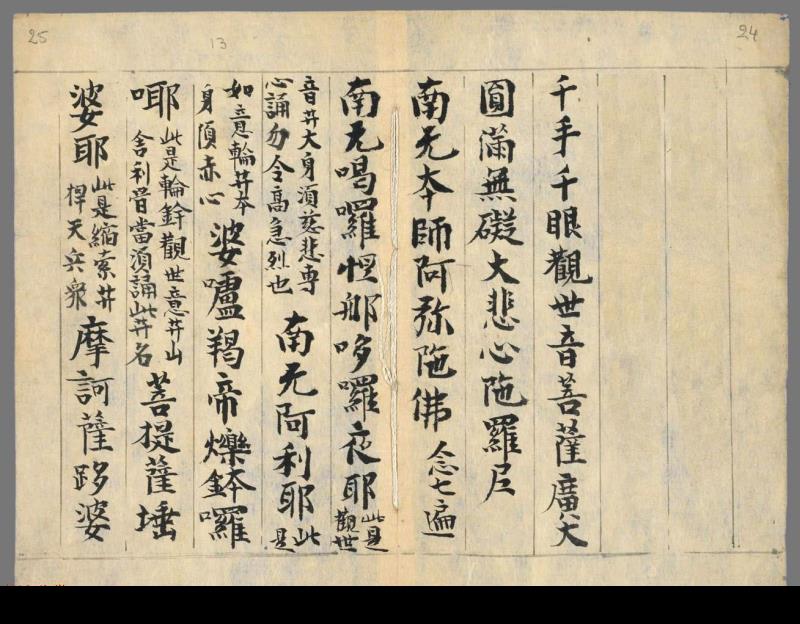 24
千手千眼觀世音菩薩廣大
圓滿無礙大悲心陁羅尼
南无本師阿弥陁佛 念七遍
南无喝囉怛那哆囉夜耶 此是觀世
音井大身須慈悲專心誦勿令高急烈也 南无阿利耶 此是
如意輪井本身須赤心 婆嚧羯帝爍鉢囉
唧 此是輪鉾觀世意井山舍利骨當須誦此井名 菩提薩埵
婆耶 此是縮索井桿天兵眾 摩訶薩跢婆
13
25